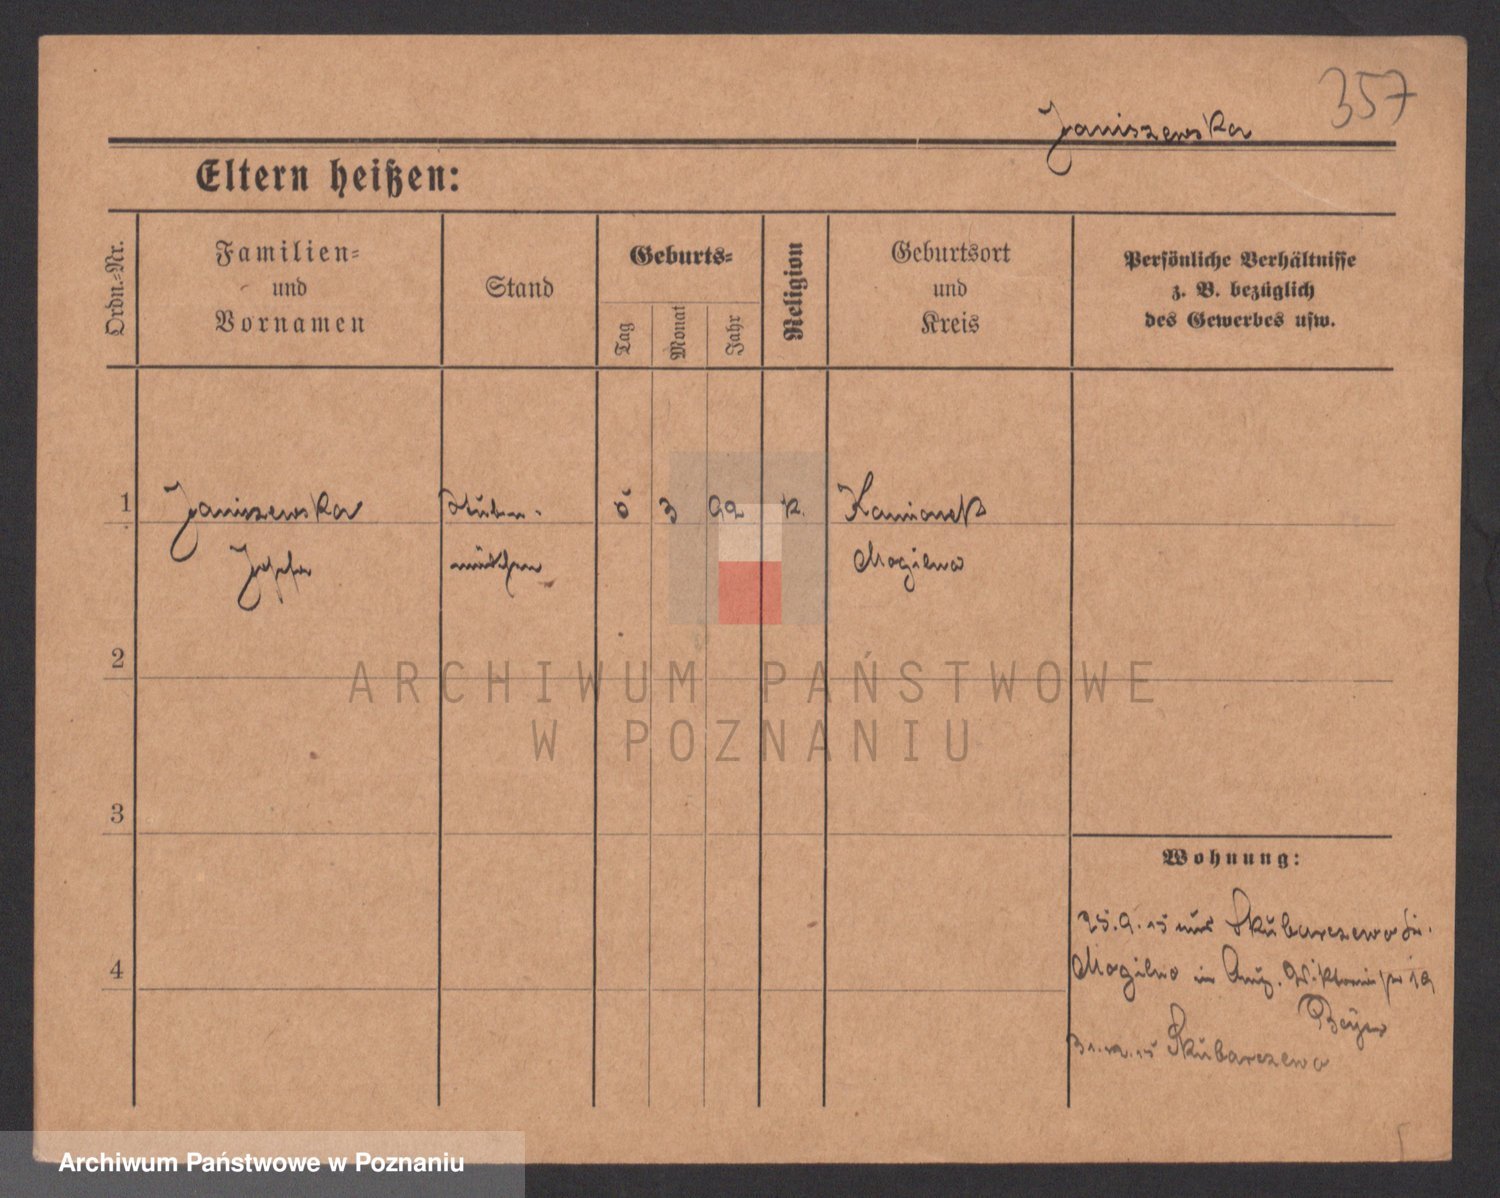 357
Janiszewska
Eltern heißen:
Ordn.-Nr.
Familien-
und
Vornamen
Stand
Geburts-
Tag
Monat
Jahr
Religion
Geburtsort
und
Kreis
Persönliche Verhältnisse
z. B. bezüglich
des Gewerbes usw.
1
Janiszewska
Stuben-
3
92
k.
Kamionek
Josefa
mädchen
Mogilno
2
ARCHIWUM PAŃSTWOWE
W POZNANIU
3
Wohnung:
4
25.9.15 aus Skubarczewo
Mogilno in Aug. Viktoria 19
Beyer
31.12.15 Skubarczewo
Archiwum Państwowe w Poznaniu